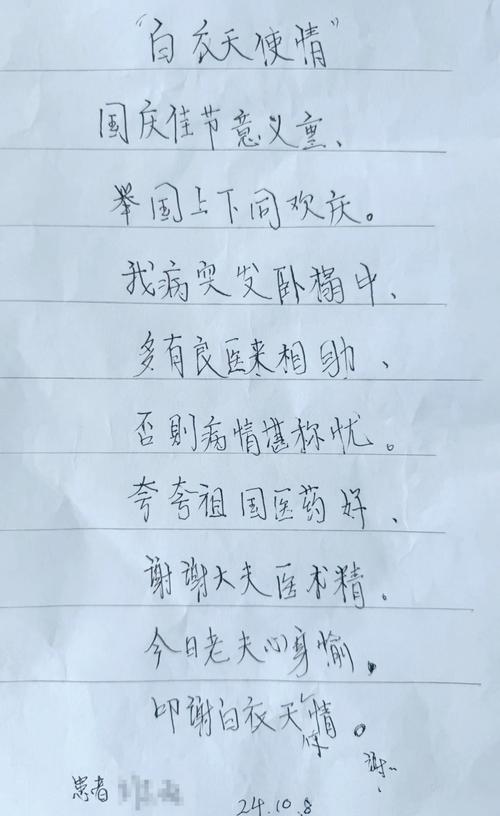 “白衣天使情”
国庆佳节意义重、
举国上下同欢庆。
我病突发卧榻中、
多有良医来相助、
否則病情堪称忧。
夸夸祖国医药好、
谢谢大夫医术精。
今日老夫心身愉。
叩谢白衣天使情。
谢…
患者
24.10.8